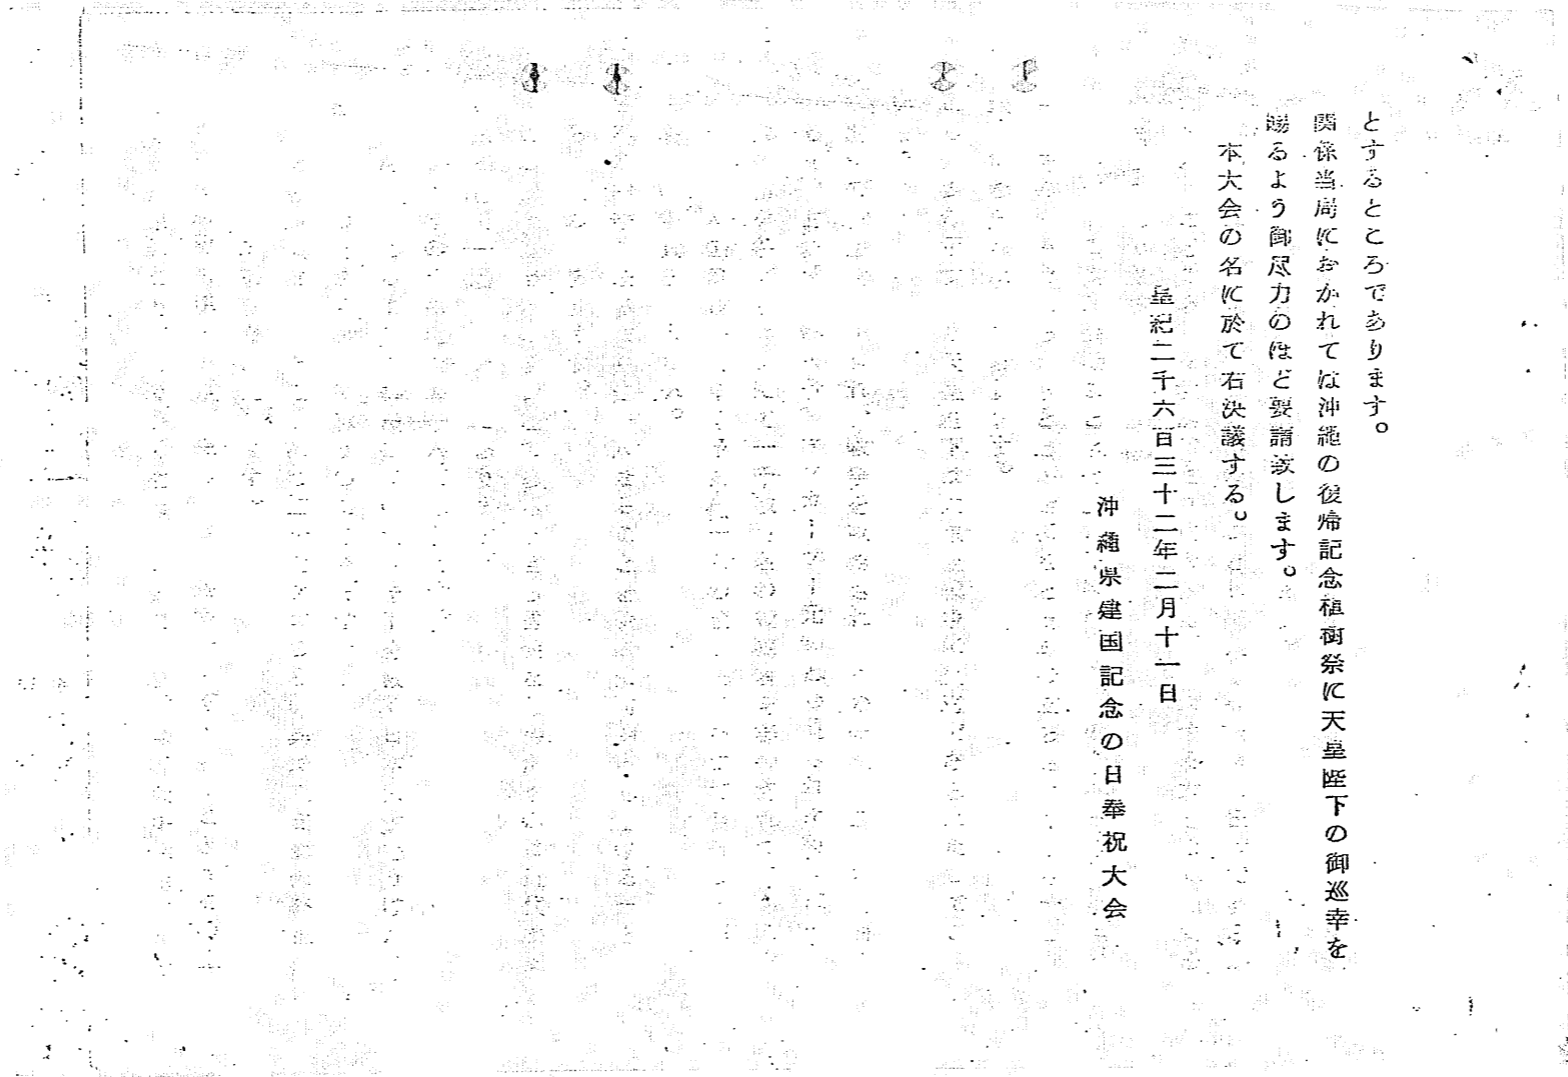 とするところであります。
関係当局におかれては沖縄の復帰記念植樹祭に天皇陛下の御巡幸を
賜るよう御尽力のほど要請致します。
本大会の名に於て右決議する。
皇紀二千六百三十二年二月十一日
沖縄県建国記念の日奉祝大会